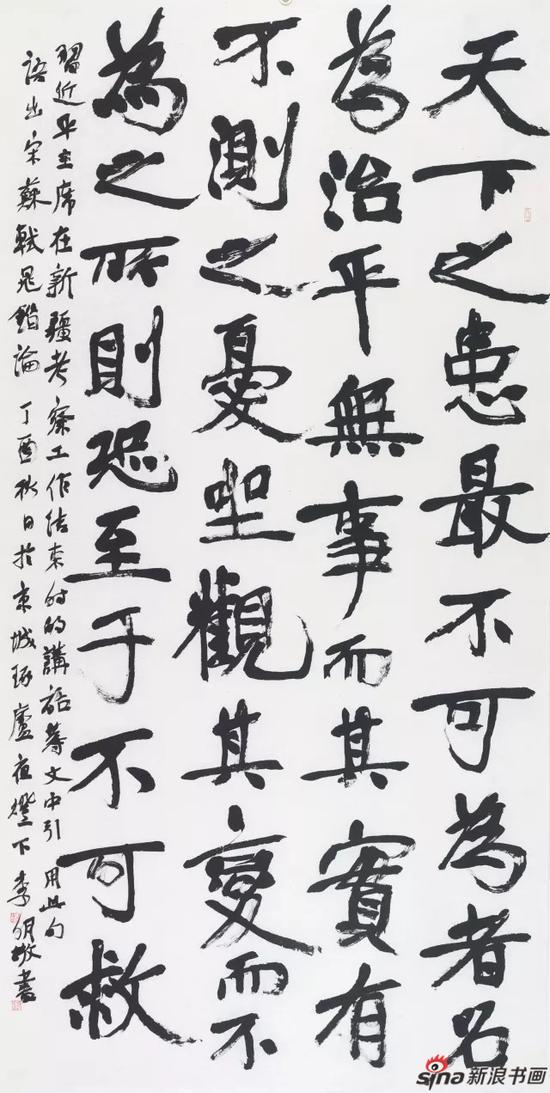 天下之患最不可為者名
為治平無事而其實有
不測之憂坐觀其變而不
為之所則恐至于不可救
習近平主席在新疆考察工作结束时的講話等文中引用此句
語出宋蘇軾晁錯論 丁酉秋日於京城琢廬夜燈下 李明敬書
sina新浪书画